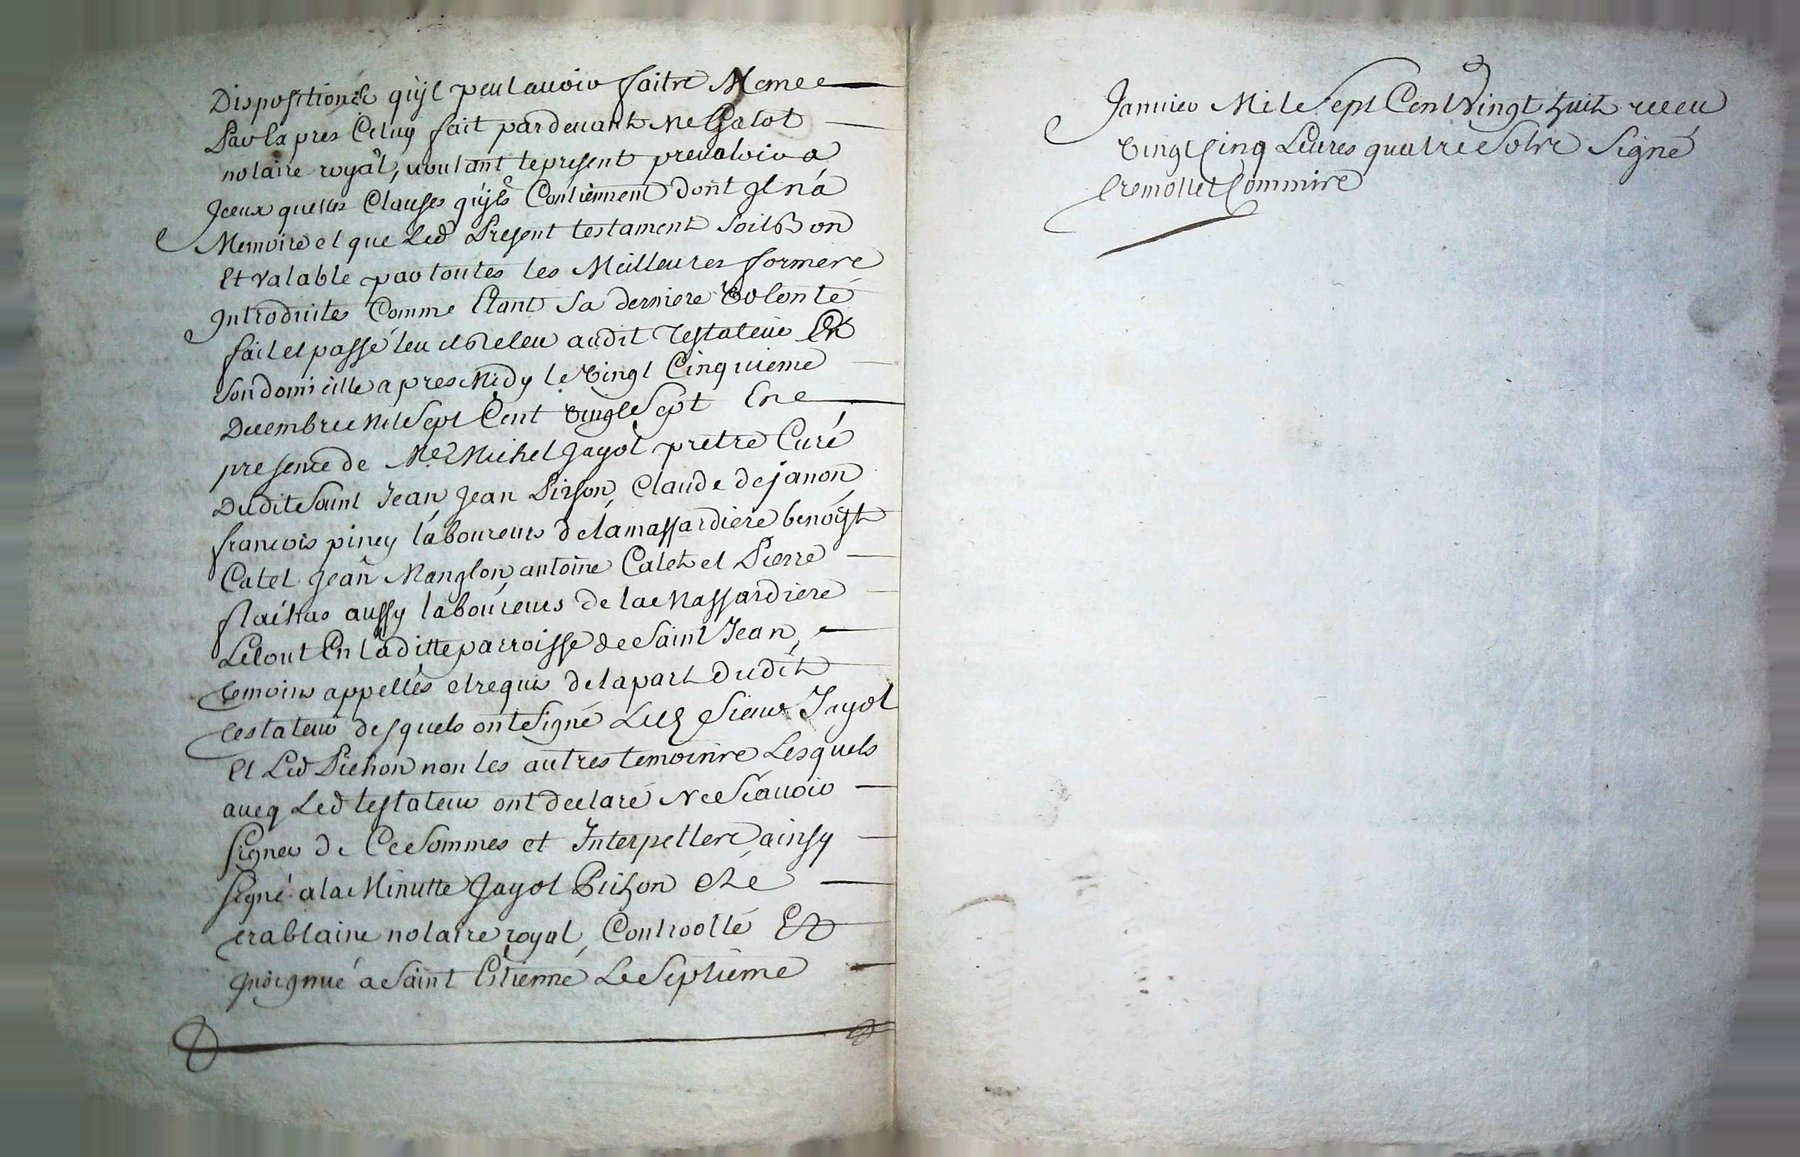 Dispositions quyl peut auoir faitte Meme
Par la pres Celuy fait pardeuant Me Galot
notaire royal, voulant le present prevaloir a
Jceux que les Clauses quyls Contiennent dont Jl n'a
Memoire et que Led Present testament soit bon
Et valable par toutes les Meilleures formes
Introduites Comme Etant sa derniere Volonté
fait et passé leu et releu audit Testateur En
son domicille apres Midy le Vingt Cinquieme
Decembre Mil Sept Cent vingt Sept En
presence de Me Michel Jayol pretre Curé
Dudit Saint Jean, Jean Claude dejanon
francois piney laboureurs de lamassardiere benoist
Catel Jean Manglon, antoine Catel et Pierre
aussy laboureurs de la Massardiere
Le tout En laditte parroisse de Saint Jean,
temoins appellés et requis de la part Dudit
testateur desquels ont Signé Led Sieur Jayol
Et Led Pichon non les autres temoins Lesquels
aueq Led testateur ont declaré Ne Scauoir
signer de Ce Sommes et Interpelles ainsy
signé a la Minutte Jayol Pichon
crablaine notaire royal, Controollé Et
Insignué a Saint Etienne Le Septieme
Januier Mil Sept Cent Vingt huit receu
Vingt Cinq Liures quatre Sols Signé
Cromollet Commis